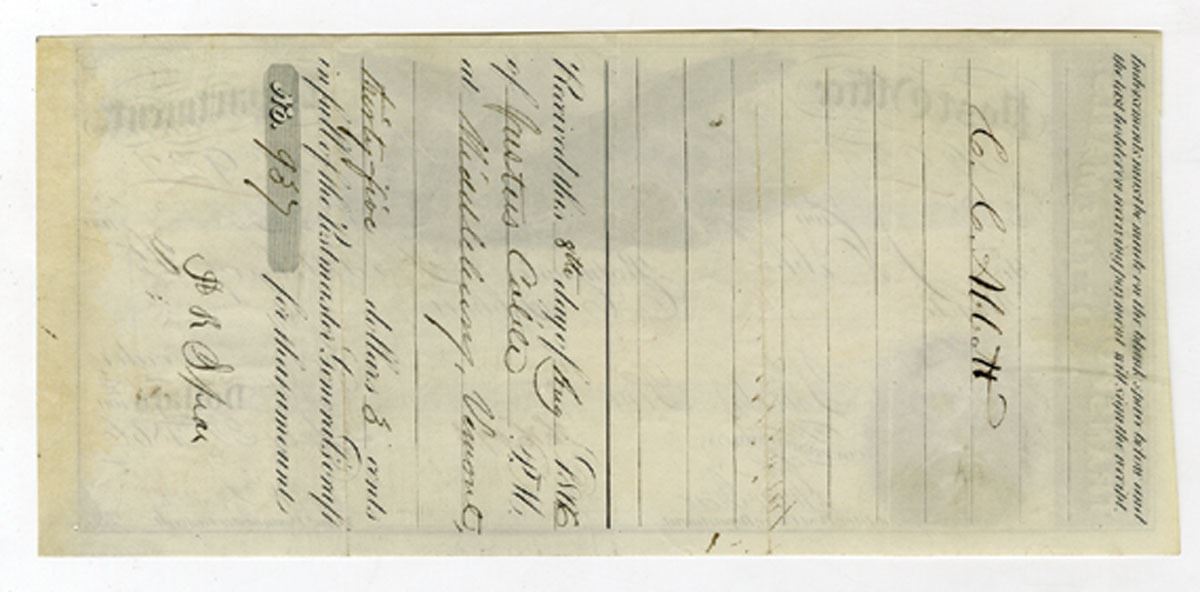 Endorsements must be made on the blank space below and
the last holder on receiving payment will sign the receipt.
C. C. Abbott
Received this 8th day of Aug 1846
of Justus Cobb P.M.
at Middlebury, Vermont,
thirty five dollars & cents
in full of the Postmaster General's draft
No. 937 for that amount.